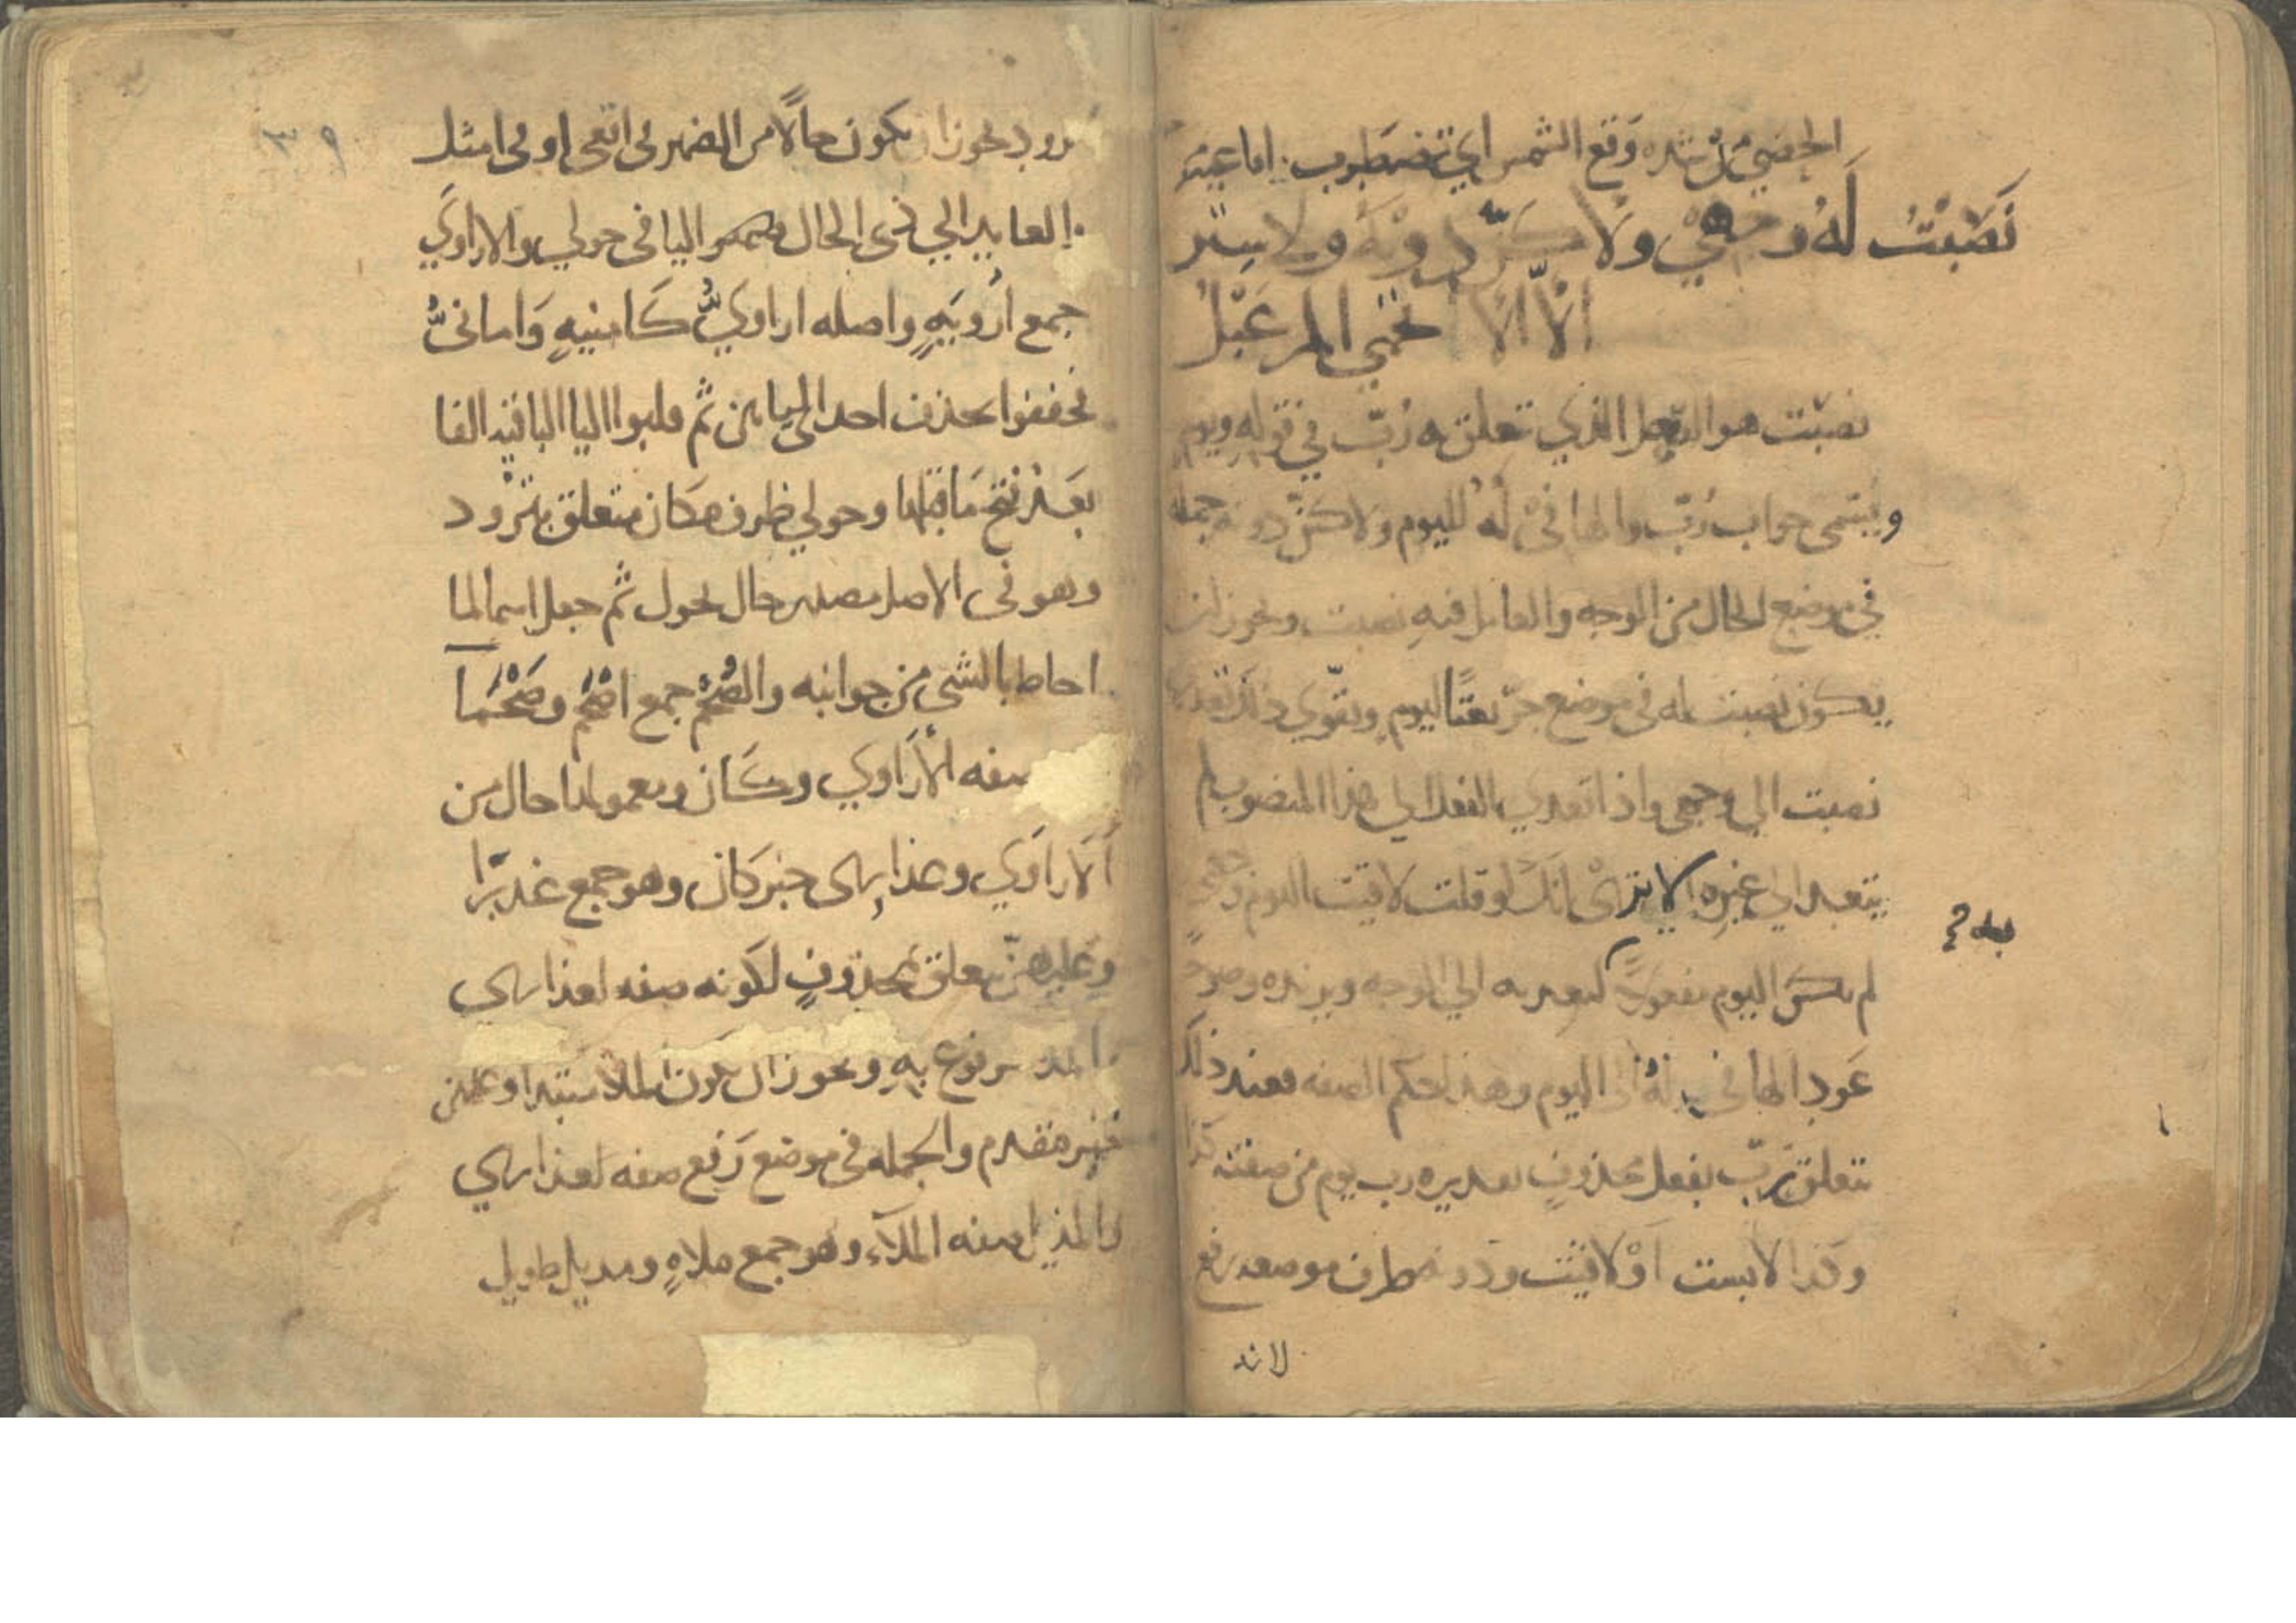 الحصى من شدة وقع الشمس اي تضطرب اما عينه
نَصَبْتُ لَهُ وجهي ولا كنّ دونه ولا ستر
الّا الا تحمي المرعبلُ
نصبت هو الفعل الذي تعلق به رُبّ في قوله ويوم
ويسمى جواب رُبّ والها في لَهُ لليوم ولا كنّ دونه جمله
في موضع الحال من الوجه والعامل فيه نصبت ويجوز ان
يكون نصبت له في موضع جرّ نعتًا ليوم ويقوّي ذلك تعدي
نصبت الي وجهي واذا تعدي الفعل الي هذا المنصوب لم
يتعد الي غيره الا ترى انك لو قلت لاقيت اليوم وجهي
لم يكن اليوم مفعولا لتعديه الي الوجه ويزيده وضوحًا
عَود الها في له الى اليوم وهذا حكم الصفه فعند ذلك
تتعلق رُبّ بفعل محذوفٍ تقديره رب يوم من صفته كذا
وكذا لابست اوْ لاقيت ودونه ظرف موضعه رفع
لانه
٣٩
ترود يجوز ان يكون حالًا من الضمير في اتقى او في امثل
العايد الي ذي الحال ضمير اليا في حولي والاراوي
جمع اُرْويَّهٍ واصله اراويُّ كامنيهٍ وَامانيُّ
فخففوا بحذف احد اليايين ثم قلبوا اليا الباقيه الفا
بَعْد فتح مَا قبلها وحولي ظرف مكان متعلق بترُود
وهو في الاصل مصدر حال يحول ثم جعل اسما لما
احاط بالشي من جوانبه والصُّحْمُ جمع اصْحَم وصَحْمَآ
صفه الأرَاوي وكان ومعمولها حال من
الارَاوي وعذارى خبر كان وهو جمع عذرَآ
وعَليهنّ متعلق بمحذوفٍ لكونه صفه لعذارى
والملا مرفوع بهِ ويجوز ان يكون الملا مبتدا وعليهن
خبر مقدم والجمله في موضع رَفع صفه لعذارى
والمذيل صفه الملآء وهو جمع ملاهٍ ومذيل طويل